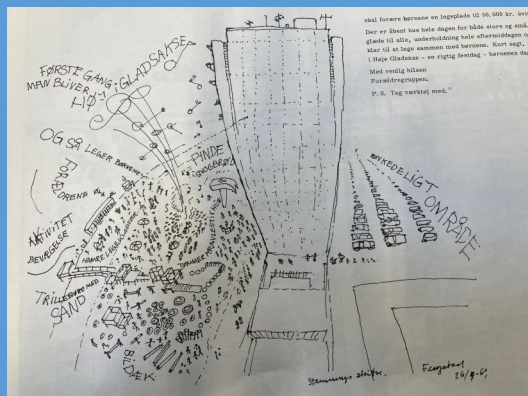 skal forære børnene en legeplads til 50,000 kr.
Der er åbent hus hele dagen for både store og små.
glade til alle, underholdning hele eftermiddagen o
klar til at lege sammen med børnene. Kort sagt,
i Høje Gladsaxe - en rigtig festdag - børnenes dag
Med venlig hilsen
Forældregruppen.
P.S. Tag værktøj med."
FØRSTE GANG I GLADSAXE
MAN BLIVER
HØJ
OG SÅ LEGER BØRNENE
FORÆLDRENE
PINDE
SNOEBRØD
AKTIVITET
BEVÆGELSE
HAMRE
TRILLEBØRE MED
SAND
BILDÆK
RYKKEDELIGT
OMRÅDE
Stemnings skitse.